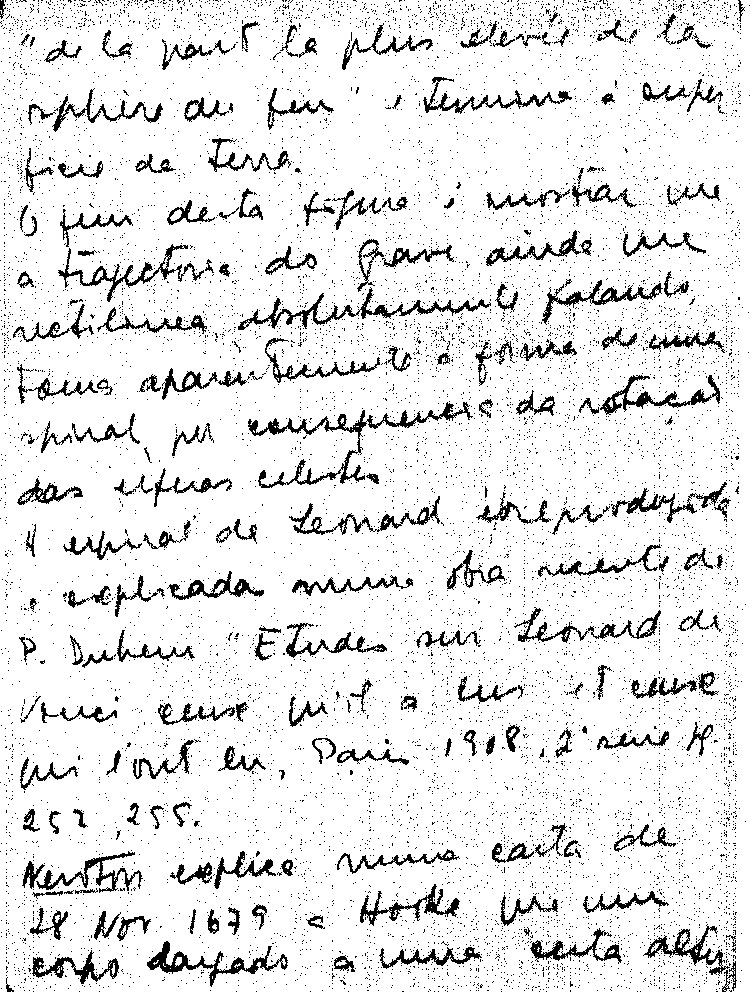 "de la part la plus elevée de la
sphère du feu" e termina á super
ficie da terra.
O fim desta figura é mostrar que
a trajectoria do grave ainda que
rectilinea, absolutamente falando,
toma aparentemente a forma de uma
spiral, por consequencia da rotação
das esferas celestes
A espiral de Leonard é reproduzida
e explicada numa obra recente de
P. Duhem "Etudes sur Leonard de
Vinci ceux qu'il a lus et ceux
qui l'ont lu, Paris 1908, 2ª serie p.
252, 255.
Newton explica numa carta de
28 Nov 1679 a Hooke que um
corpo largado a uma certa altu